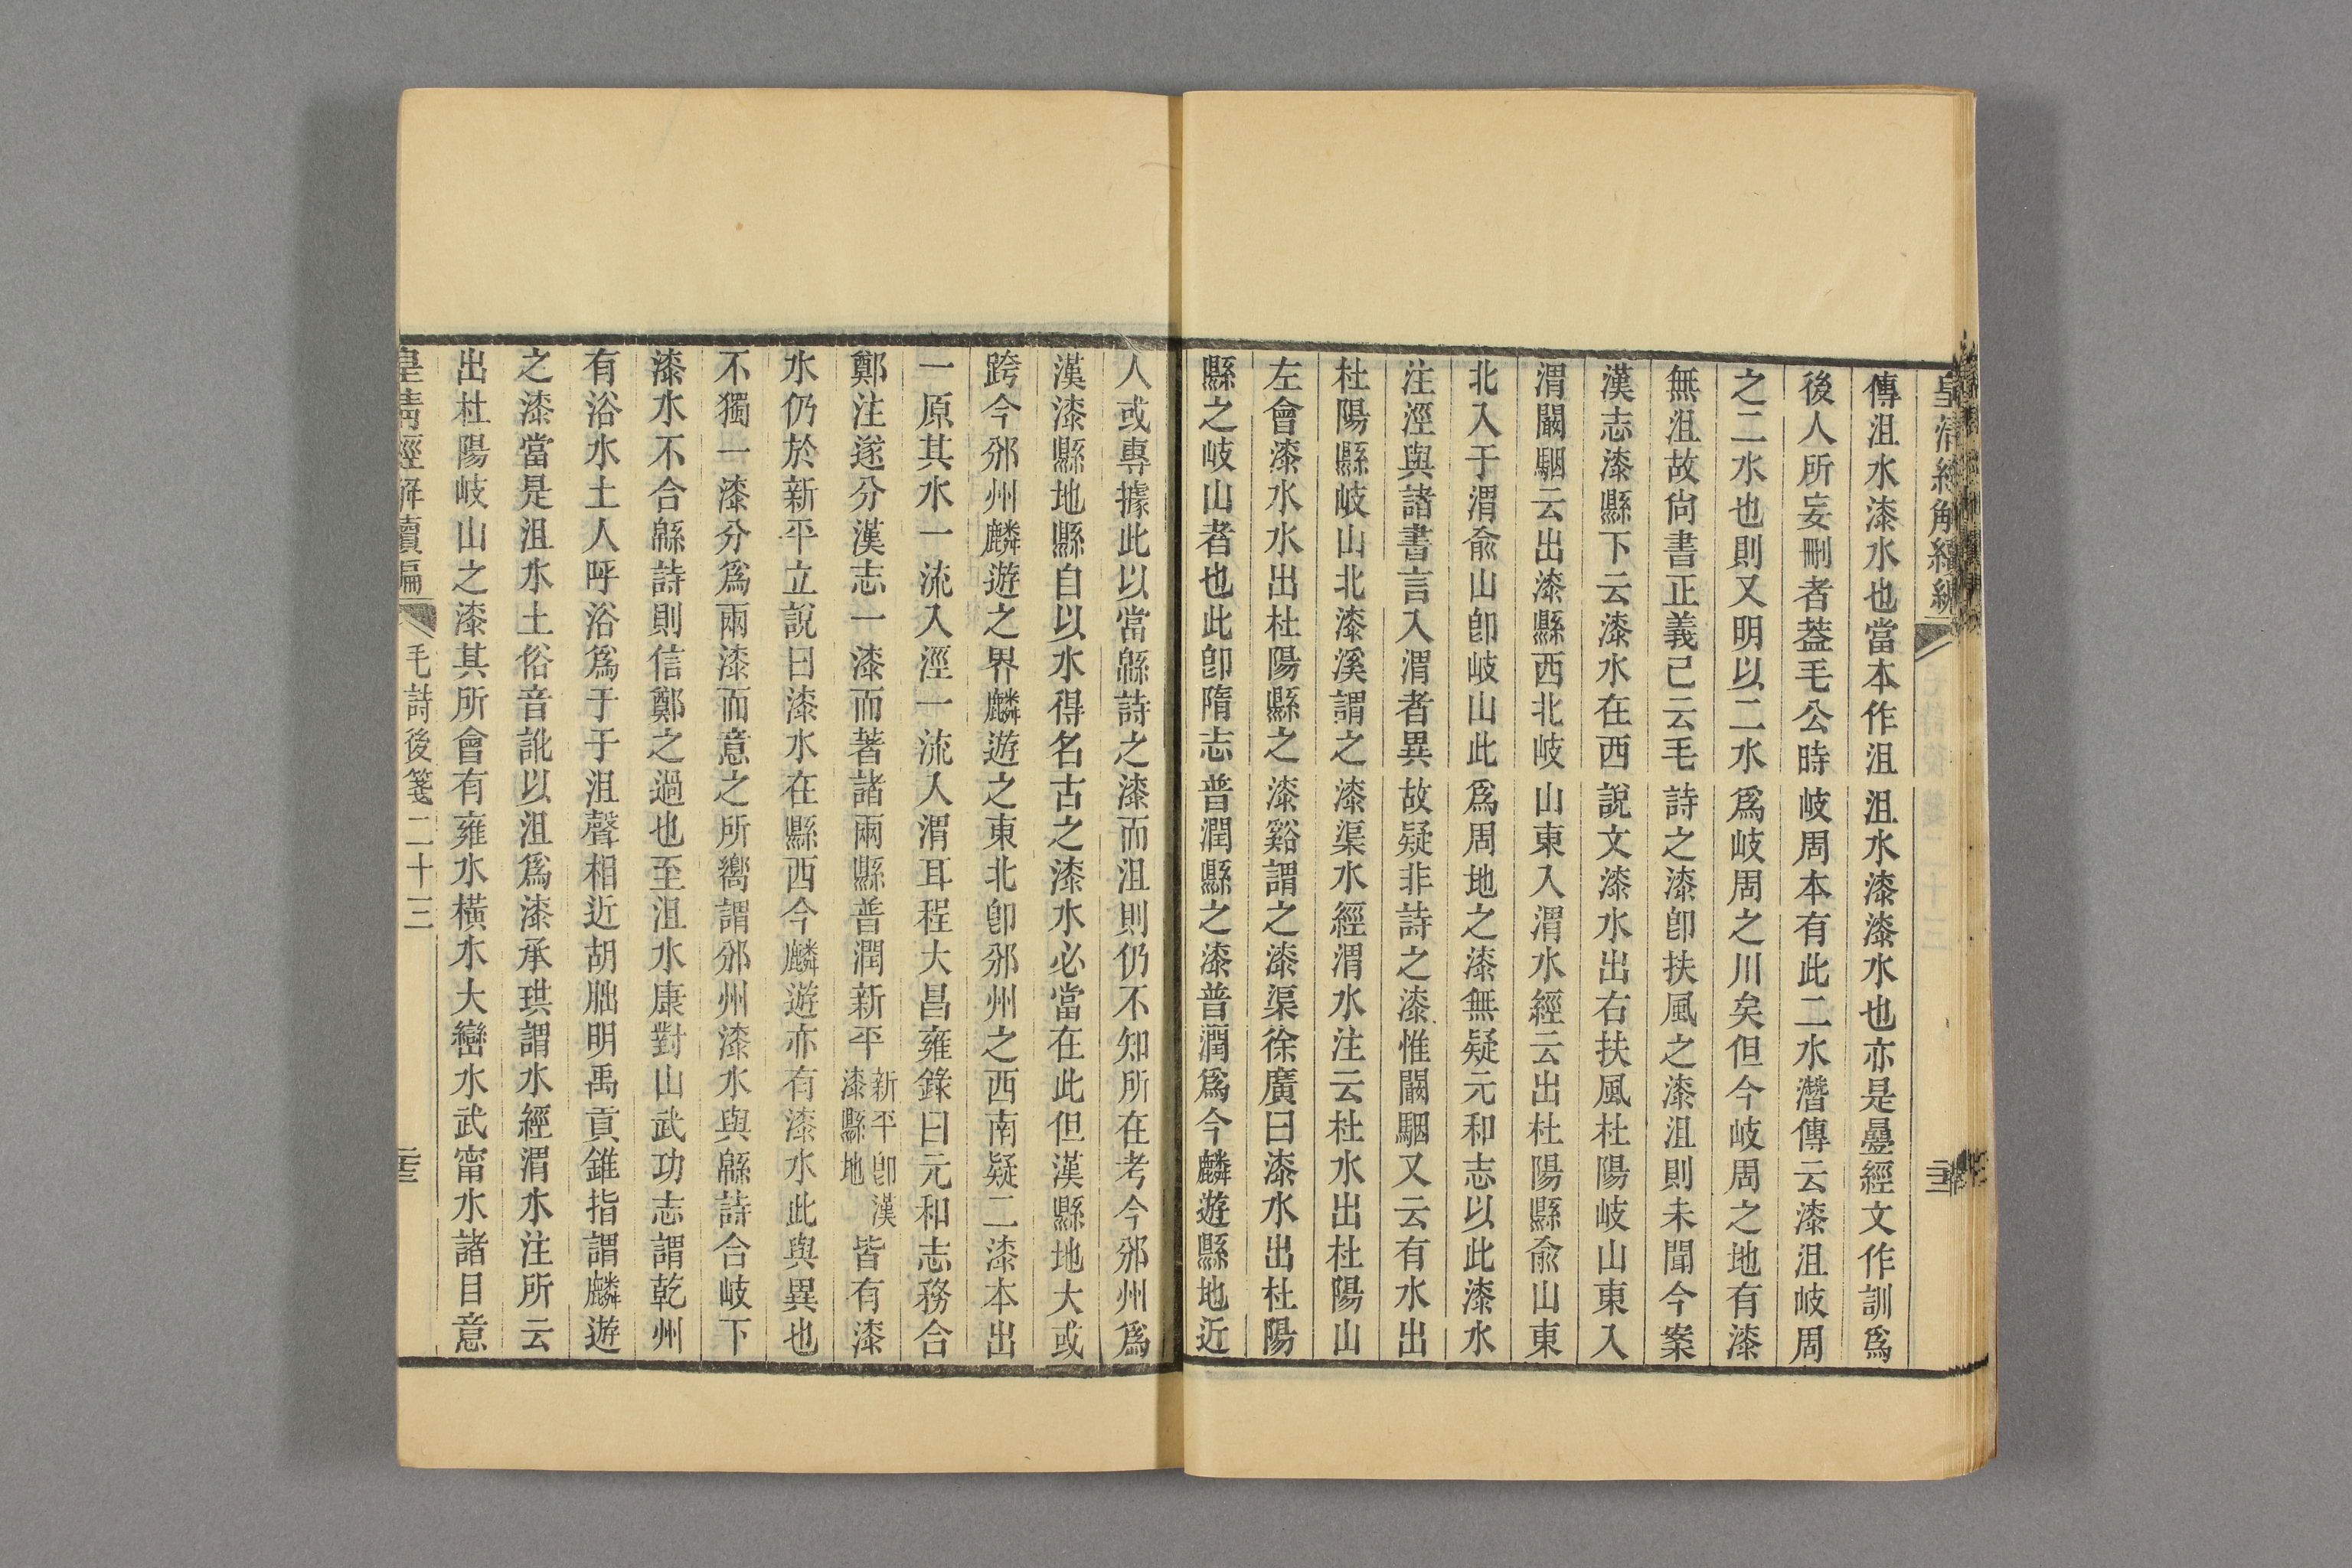 皇清經解續編
傳沮水漆水也當本作沮沮水漆漆水也亦是疊經文作訓爲
後人所妄刪者葢毛公時岐周本有此二水潛傳云漆沮岐周
之二水也則又明以二水爲岐周之川矣但今岐周之地有漆
無沮故尙書正義已云毛詩之漆卽扶風之漆沮則未聞今案
漢志漆縣下云漆水在西說文漆水出右扶風杜陽岐山東入
渭闞駰云出漆縣西北岐山東入渭水經云出杜陽縣俞山東
北入于渭俞山卽岐山此爲周地之漆無疑元和志以此漆水
注涇與諸書言入渭者異故疑非詩之漆惟闞駰又云有水出
杜陽縣岐山北漆溪謂之漆渠水經渭水注云杜水出杜陽山
左會漆水水出杜陽縣之漆谿謂之漆渠徐廣曰漆水出杜陽
縣之岐山者也此卽隋志普潤縣之漆普潤爲今麟遊縣地近
人或專據此以當緜詩之漆而沮則仍不知所在考今邠州爲
漢漆縣地縣自以水得名古之漆水必當在此但漢縣地大或
跨今邠州麟遊之界麟遊之東北卽邠州之西南疑二漆本出
一原其水一流入涇一流入渭耳程大昌雍錄曰元和志務合
鄭注遂分漢志一漆而著諸兩縣普潤新平新平卽漢漆縣地皆有漆
水仍於新平立說曰漆水在縣西今麟遊亦有漆水此與異也
不獨一漆分爲兩漆而意之所嚮謂邠州漆水與緜詩合岐下
漆水不合緜詩則信鄭之過也至沮水康對山武功志謂乾州
有浴水土人呼浴爲于于沮聲相近胡朏明禹貢錐指謂麟遊
之漆當是沮水土俗音訛以沮爲漆承珙謂水經渭水注所云
出杜陽岐山之漆其所會有雍水橫水大巒水武甯水諸目意
皇淸經解續編
毛詩後箋二十三